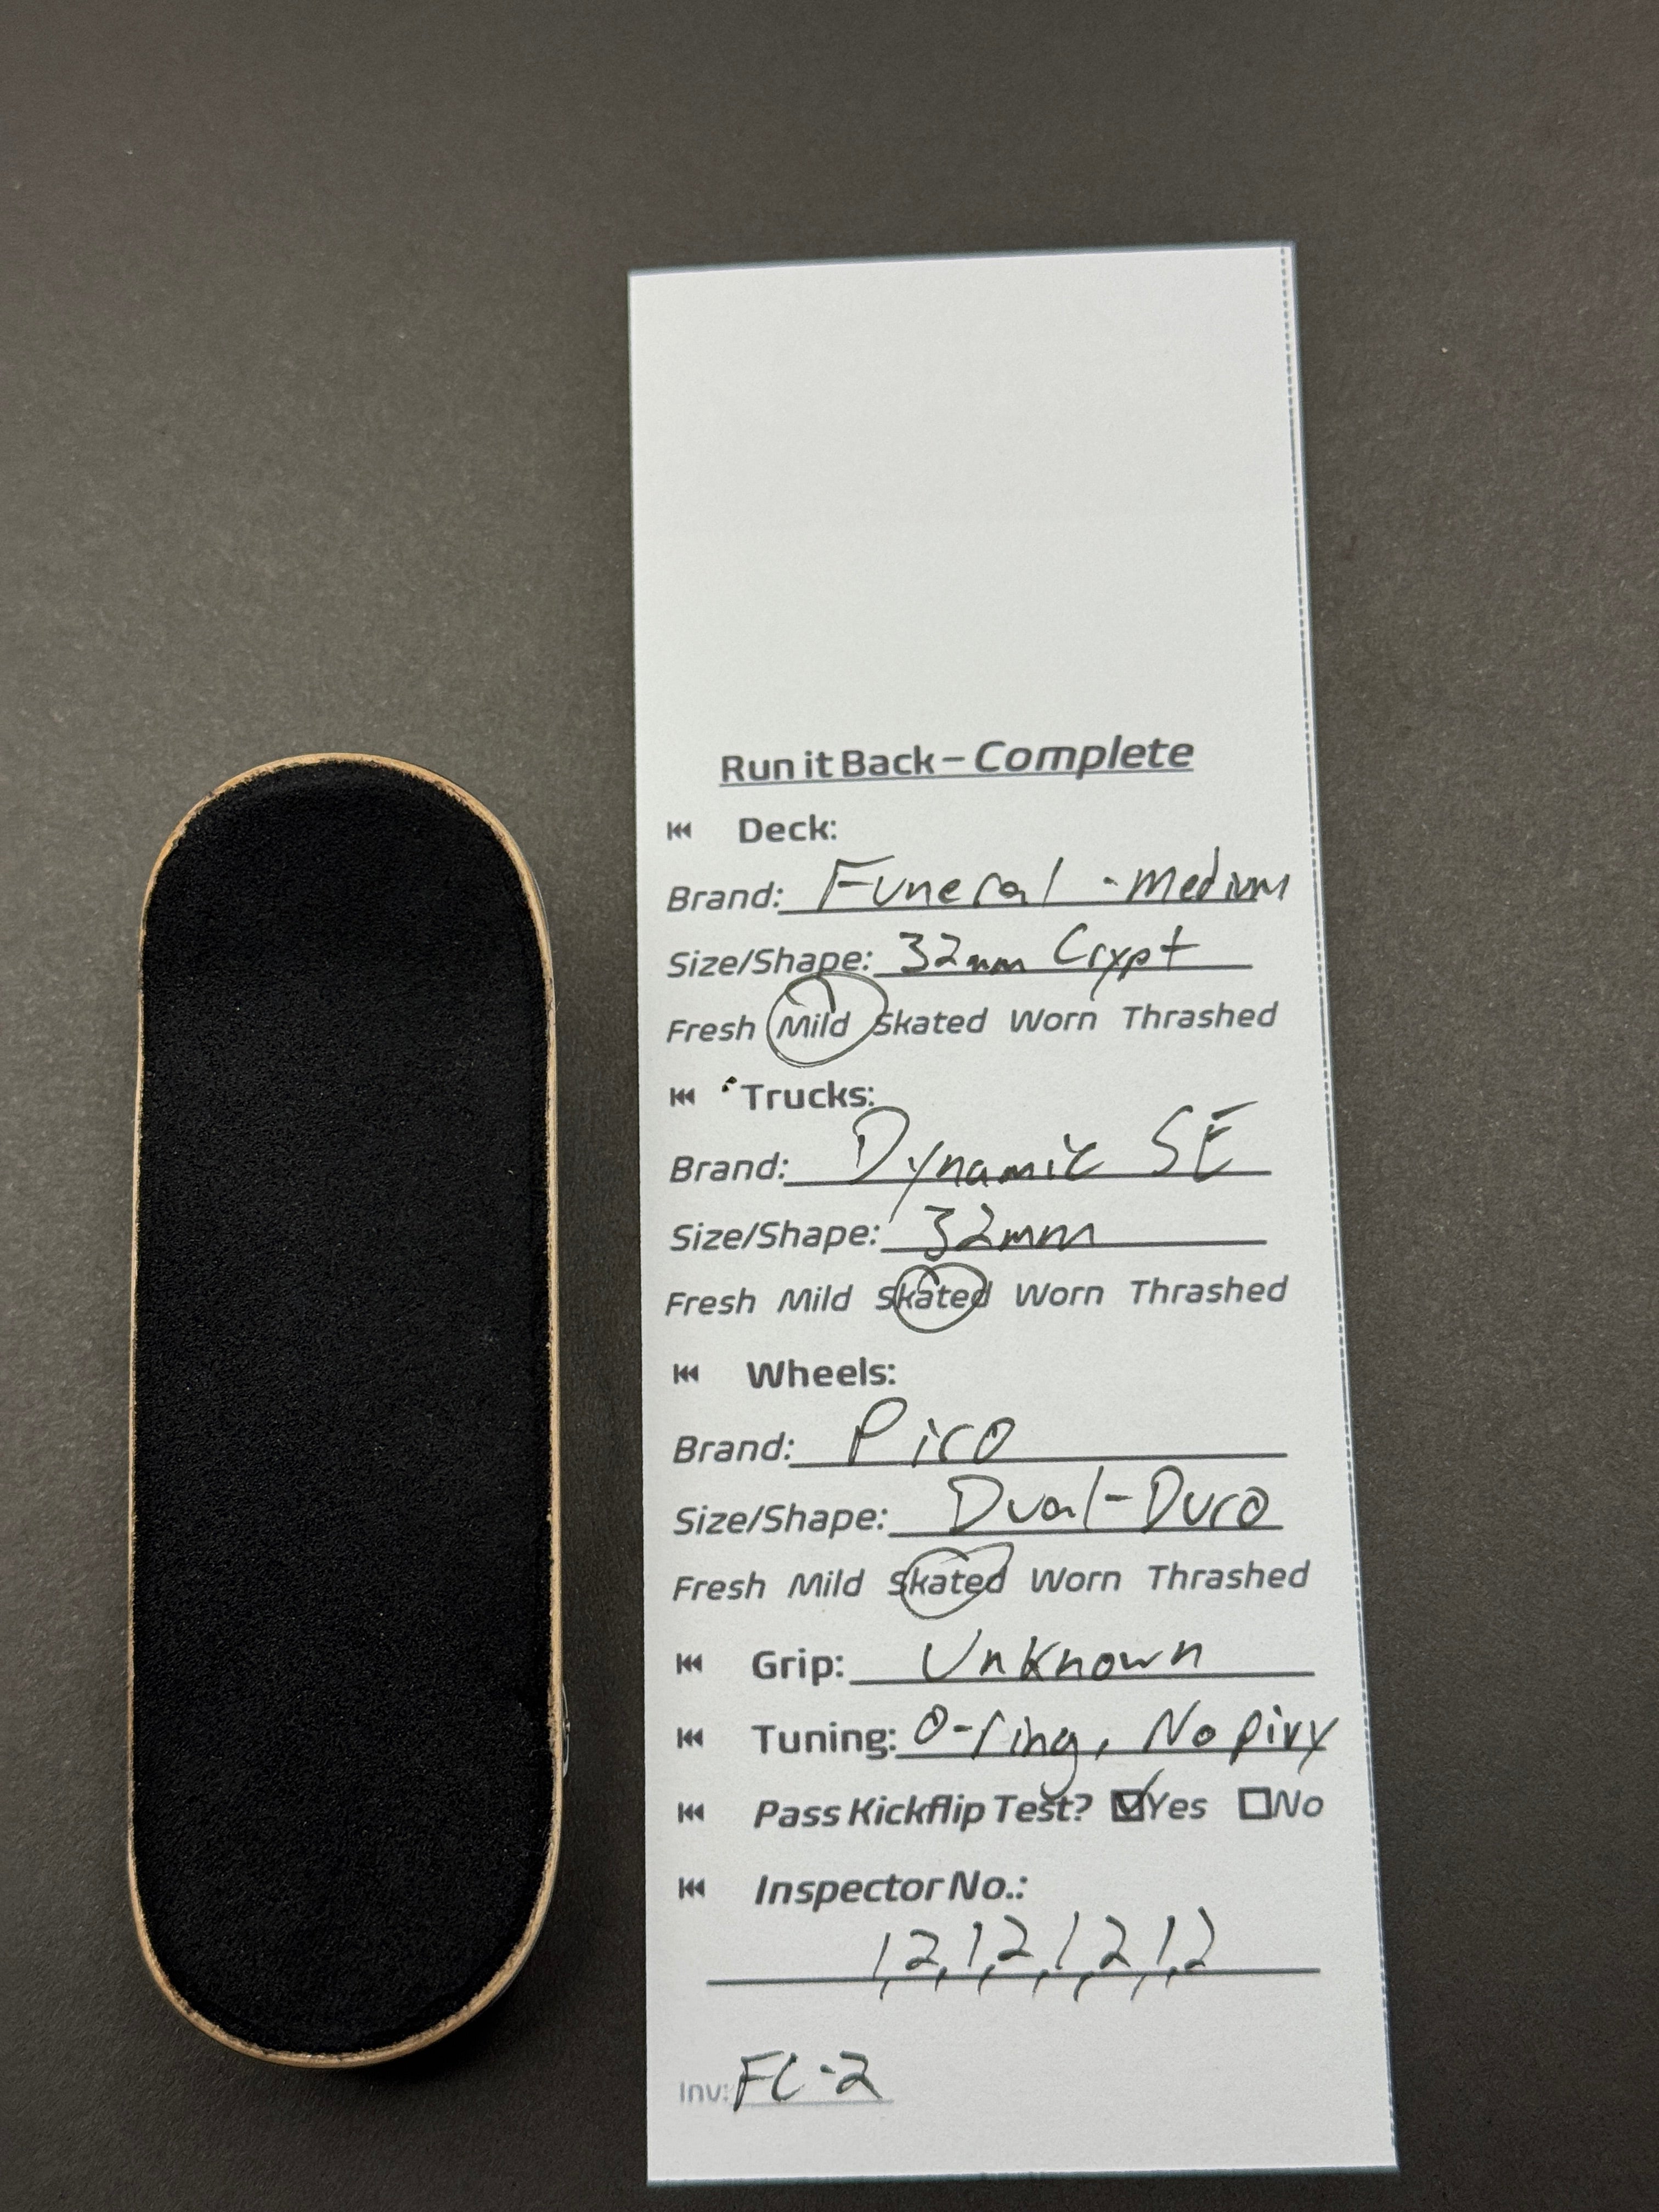 Run it Back – Complete
Deck:
Brand: Funeral - medium
Size/Shape: 32mm Crypt
Fresh Mild Skated Worn Thrashed
Trucks:
Brand: Dynamic SE
Size/Shape: 32mm
Fresh Mild Skated Worn Thrashed
Wheels:
Brand: Pico
Size/Shape: Dual-Duro
Fresh Mild Skated Worn Thrashed
Grip: Unknown
Tuning: O-ring, No pivy
Pass Kickflip Test? Yes No
Inspector No.:
1,2,1,2,1,2,1,2
Inv: FC-2